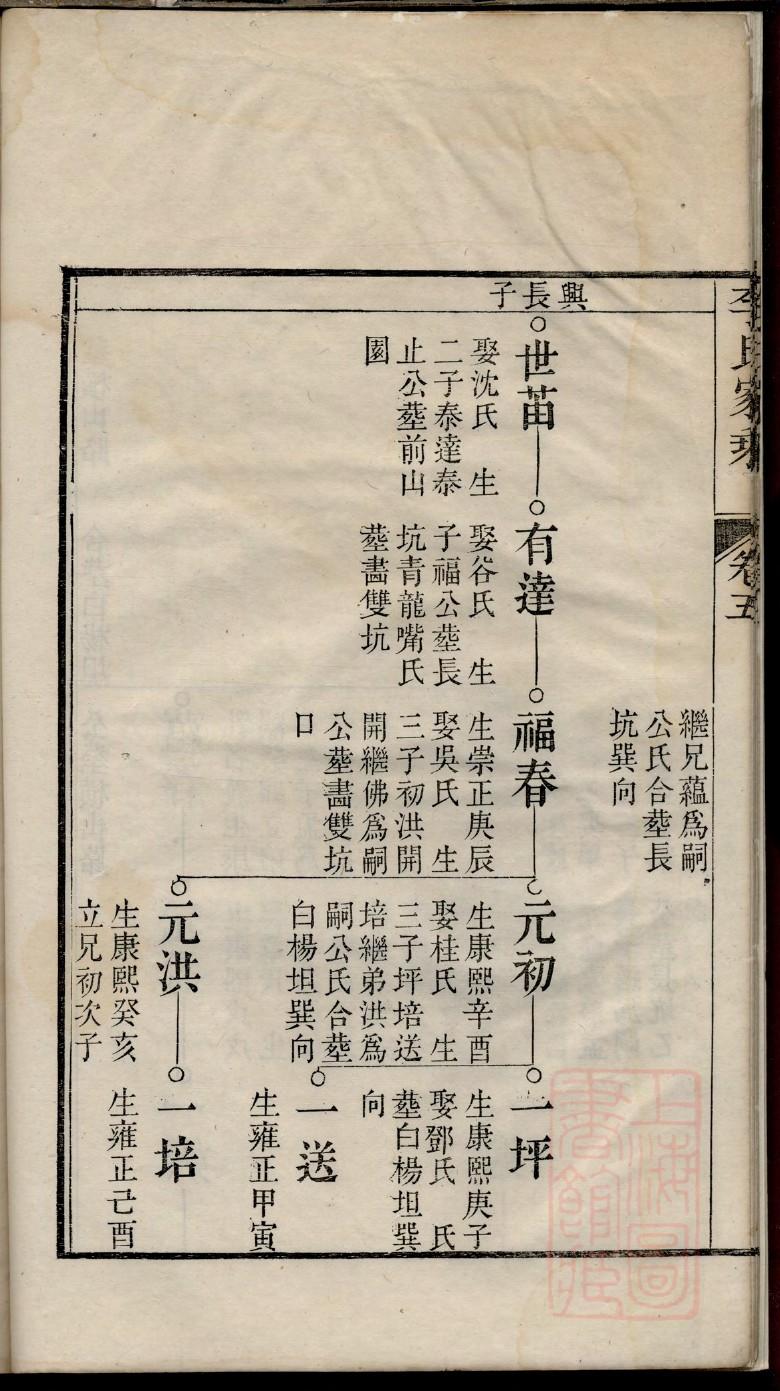 李氏家乘
卷五
繼兄蘊爲嗣
公氏合塟長
坑巽向
興長子
世苗
娶沈氏 生
二子泰達泰
止公塟前山
園
有達
娶谷氏 生
子福公塟長
坑青龍嘴氏
塟畵雙坑
福春
生崇正庚辰
娶吳氏 生
三子初洪開
開繼佛爲嗣
公塟畵雙坑
口
元初
生康熙辛酉
娶桂氏 生
三子坪培送
培繼弟洪爲
嗣公氏合塟
白楊坦巽向
一坪
生康熙庚子
娶鄧氏 氏
塟白楊坦巽
向
一送
生雍正甲寅
元洪
生康熙癸亥
立兄初次子
一培
生雍正己酉
上海圖
書館藏